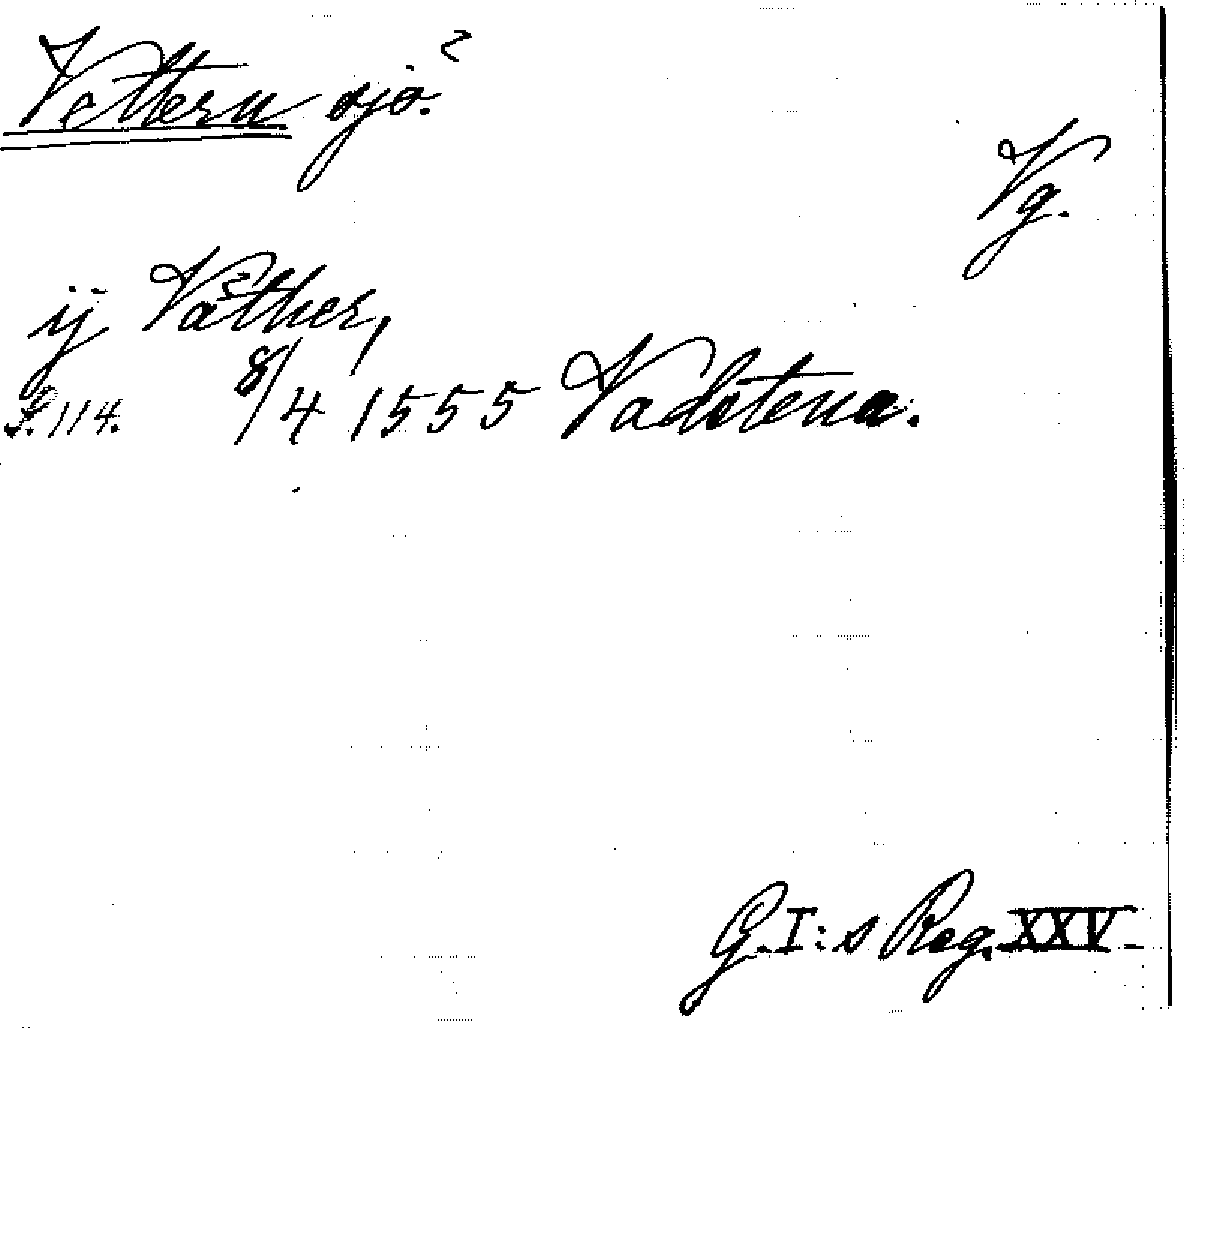 Vettern sjö.?
Vg.
ij Våther,
S. 114. 8/4 1555 Vadstena.
G.I:s Reg. XXV